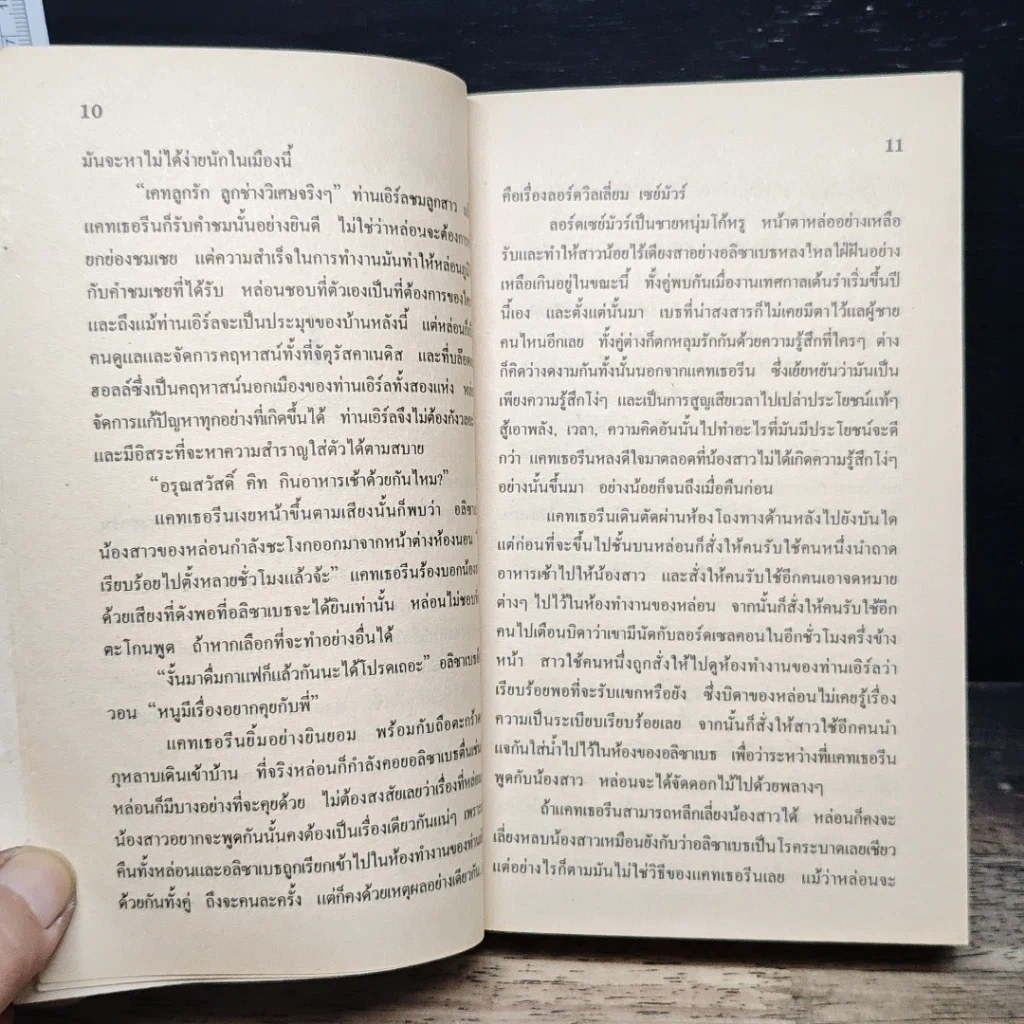 10
มันจะหาไม่ได้ง่ายนักในเมืองนี้
“เคทลูกรัก ลูกช่างวิเศษจริงๆ” ท่านเอิร์ลชมลูกสาว
แคทเธอรีนก็รับคำชมนั้นอย่างยินดี ไม่ใช่ว่าหล่อนจะต้องการ
ยกย่องชมเชย แต่ความสำเร็จในการทำงานมันทำให้หล่อนภูมิ
กับคำชมเชยที่ได้รับ หล่อนชอบที่ตัวเองเป็นที่ต้องการของ
และถึงแม้ท่านเอิร์ลจะเป็นประมุขของบ้านหลังนี้ แต่หล่อน
คนดูแลและจัดการคฤหาสน์ทั้งที่จัตุรัสคาเนดิส และที่บล็อค
ฮอลล์ซึ่งเป็นคฤหาสน์นอกเมืองของท่านเอิร์ลทั้งสองแห่ง
จัดการแก้ปัญหาทุกอย่างที่เกิดขึ้นได้ ท่านเอิร์ลจึงไม่ต้องกังวล
และมีอิสระที่จะหาความสำราญใส่ตัวได้ตามสบาย
“อรุณสวัสดิ์ คิท กินอาหารเช้าด้วยกันไหม?”
แคทเธอรีนเงยหน้าขึ้นตามเสียงนั้นก็พบว่า
น้องสาวของหล่อนกำลังชะโงกออกมาจากหน้าต่างห้องนอน
เรียบร้อยไปตั้งหลายชั่วโมงแล้วจ้ะ” แคทเธอรีนร้องบอกน้อง
ด้วยเสียงที่ดังพอที่อลิซาเบธจะได้ยินเท่านั้น หล่อนไม่ชอบ
ตะโกนพูด ถ้าหากเลือกที่จะทำอย่างอื่นได้
“งั้นมาดื่มกาแฟก็แล้วกันนะได้โปรดเถอะ” อลิซาเบธ
วอน “หนูมีเรื่องอยากคุยกับพี่”
แคทเธอรีนยิ้มอย่างยินยอม พร้อมกับถือตะกร้า
กุหลาบเดินเข้าบ้าน ที่จริงหล่อนก็กำลังคอยอลิซาเบธตื่น
หล่อนก็มีบางอย่างที่จะคุยด้วย ไม่ต้องสงสัยเลยว่าเรื่องที่หล่อน
น้องสาวอยากจะพูดกันนั้นคงต้องเป็นเรื่องเดียวกันแน่ๆ เพราะ
คืนทั้งหล่อนและอลิซาเบธถูกเรียกเข้าไปในห้องทำงานของท่าน
ด้วยกันทั้งคู่ ถึงจะคนละครั้ง แต่ก็คงด้วยเหตุผลอย่างเดียวกัน
11
คือเรื่องลอร์ดวิลเลี่ยม เซย์มัวร์
ลอร์ดเซย์มัวร์เป็นชายหนุ่มโก้หรู หน้าตาหล่ออย่างเหลือ
รับและทำให้สาวน้อยไร้เดียงสาอย่างอลิซาเบธหลงใหลใฝ่ฝันอย่าง
เหลือเกินอยู่ในขณะนี้ ทั้งคู่พบกันเมื่องานเทศกาลเต้นรำเริ่มขึ้นปี
นี้เอง และตั้งแต่นั้นมา เบธที่น่าสงสารก็ไม่เคยมีตาไว้แลผู้ชาย
คนไหนอีกเลย ทั้งคู่ต่างก็ตกหลุมรักกันด้วยความรู้สึกที่ใครๆ ต่าง
ก็คิดว่างดงามกันทั้งนั้นนอกจากแคทเธอรีน ซึ่งเย้ยหยันว่ามันเป็น
เพียงความรู้สึกโง่ๆ และเป็นการสูญเสียเวลาไปเปล่าประโยชน์แท้ๆ
สู้เอาพลัง, เวลา, ความคิดอันนั้นไปทำอะไรที่มันมีประโยชน์จะดี
กว่า แคทเธอรีนหลงดีใจมาตลอดที่น้องสาวไม่ได้เกิดความรู้สึกโง่ๆ
อย่างนั้นขึ้นมา อย่างน้อยก็จนถึงเมื่อคืนก่อน
แคทเธอรีนเดินตัดผ่านห้องโถงทางด้านหลังไปยังบันได
แต่ก่อนที่จะขึ้นไปชั้นบนหล่อนก็สั่งให้คนรับใช้คนหนึ่งนำถาด
อาหารเช้าไปให้น้องสาว และสั่งให้คนรับใช้อีกคนเอาจดหมาย
ต่างๆ ไปไว้ในห้องทำงานของหล่อน จากนั้นก็สั่งให้คนรับใช้อีก
คนไปเตือนบิดาว่าเขามีนัดกับลอร์ดเซลคอนในอีกชั่วโมงครึ่งข้าง
หน้า สาวใช้คนหนึ่งถูกสั่งให้ไปดูห้องทำงานของท่านเอิร์ลว่า
เรียบร้อยพอที่จะรับแขกหรือยัง ซึ่งบิดาของหล่อนไม่เคยรู้เรื่อง
ความเป็นระเบียบเรียบร้อยเลย จากนั้นก็สั่งให้สาวใช้อีกคนนำ
แจกันใส่น้ำไปไว้ในห้องของอลิซาเบธ เพื่อว่าระหว่างที่แคทเธอรีน
พูดกับน้องสาว หล่อนจะได้จัดดอกไม้ไปด้วยพลางๆ
ถ้าแคทเธอรีนสามารถหลีกเลี่ยงน้องสาวได้ หล่อนก็คงจะ
เลี่ยงหลบน้องสาวเหมือนยังกับว่าอลิซาเบธเป็นโรคระบาดเลยเชียว
แต่อย่างไรก็ตามมันไม่ใช่วิธีของแคทเธอรีนเลย แม้ว่าหล่อนจะ